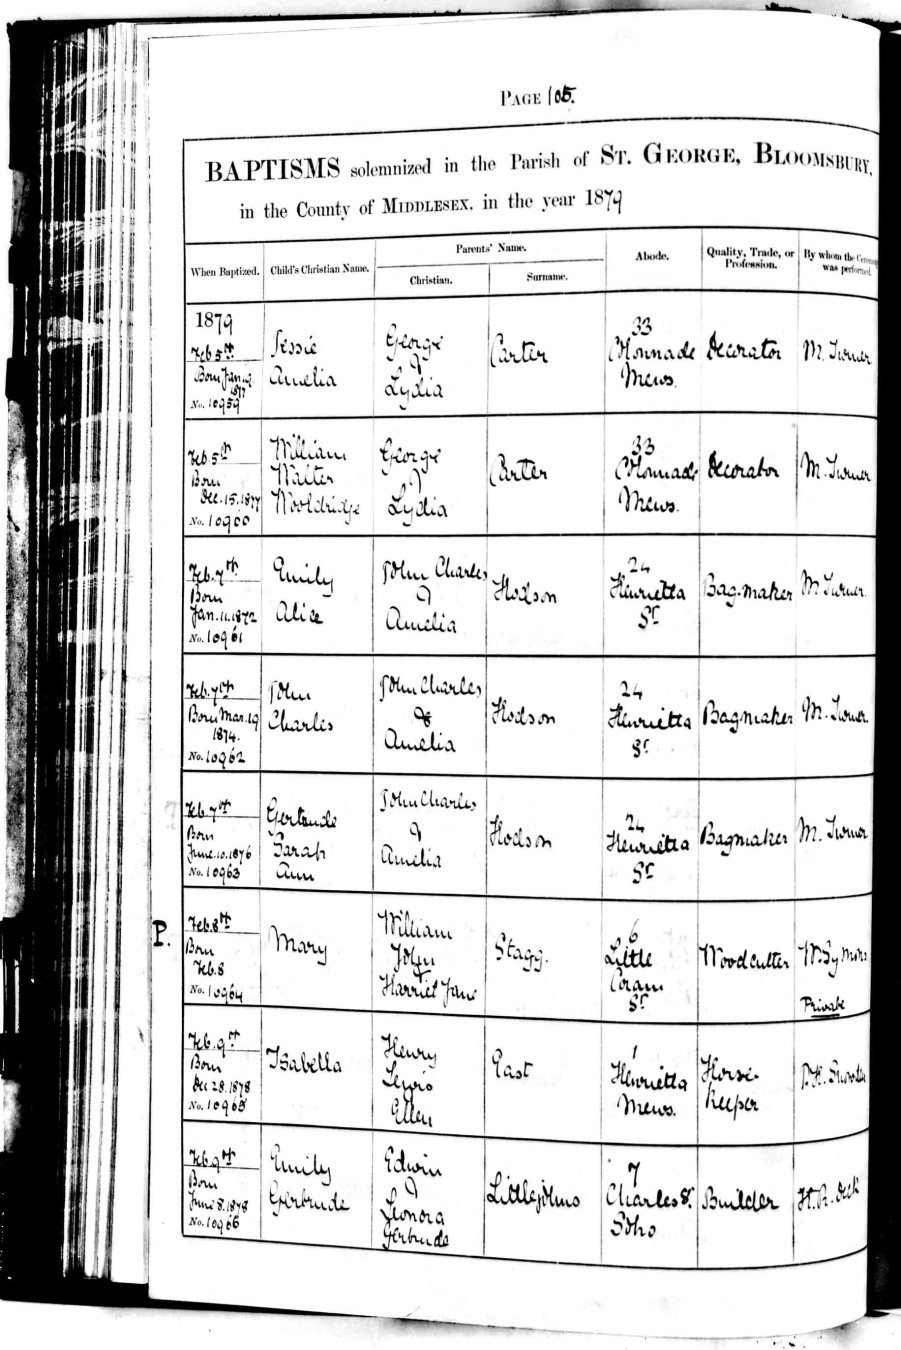 PAGE 105.
BAPTISMS solemnized in the Parish of ST. GEORGE, BLOOMSBURY,
in the County of MIDDLESEX, in the year 1879
When Baptized.
Child's Christian Name.
Parents' Name.
Christian.
Surname.
Abode.
Quality, Trade, or
Profession.
By whom the Ceremony
was performed.
1879
Feb 5th
Born Jan 9
1877
No. 10959
Jessie
Amelia
George
&
Lydia
Carter
33
Colonnade
Mews.
Decorator
M. Turner
Feb 5th
Born
Dec. 15. 1877
No. 10960
William
Walter
Wooldridge
George
&
Lydia
Carter
33
Colonnade
Mews.
Decorator
M. Turner
Feb. 7th
Born
Jan. 11. 1872
No. 10961
Emily
Alice
John Charles
&
Amelia
Hodson
24
Henrietta
St
Bag-maker
M Turner.
Feb. 7th
Born Mar. 19
1874.
No. 10962
John
Charles
John Charles
&
Amelia
Hodson
24
Henrietta
St
Bagmaker
M. Turner.
Feb. 7th
Born
June. 10. 1876
No. 10963
Gertrude
Sarah
Ann
John Charles
&
Amelia
Hodson
24
Henrietta
St
Bagmaker
M. Turner
P.
Feb. 8th
Born
Feb. 8
No. 10964
Mary
William
John
&
Harriet Jane
Stagg.
6
Little
Coram
St
Woodcutter
W. Symons
Private
Feb. 9th
Born
Dec 28. 1878
No. 10965
Isabella
Henry
Lewis
Ellen
East
1
Henrietta
Mews.
Horse-
keeper
Feb. 9th
Born
June 8. 1878
No. 10966
Emily
Gertrude
Edwin
&
Leonora
Gertrude
Littlejohns
7
Charles St.
Soho
Builder